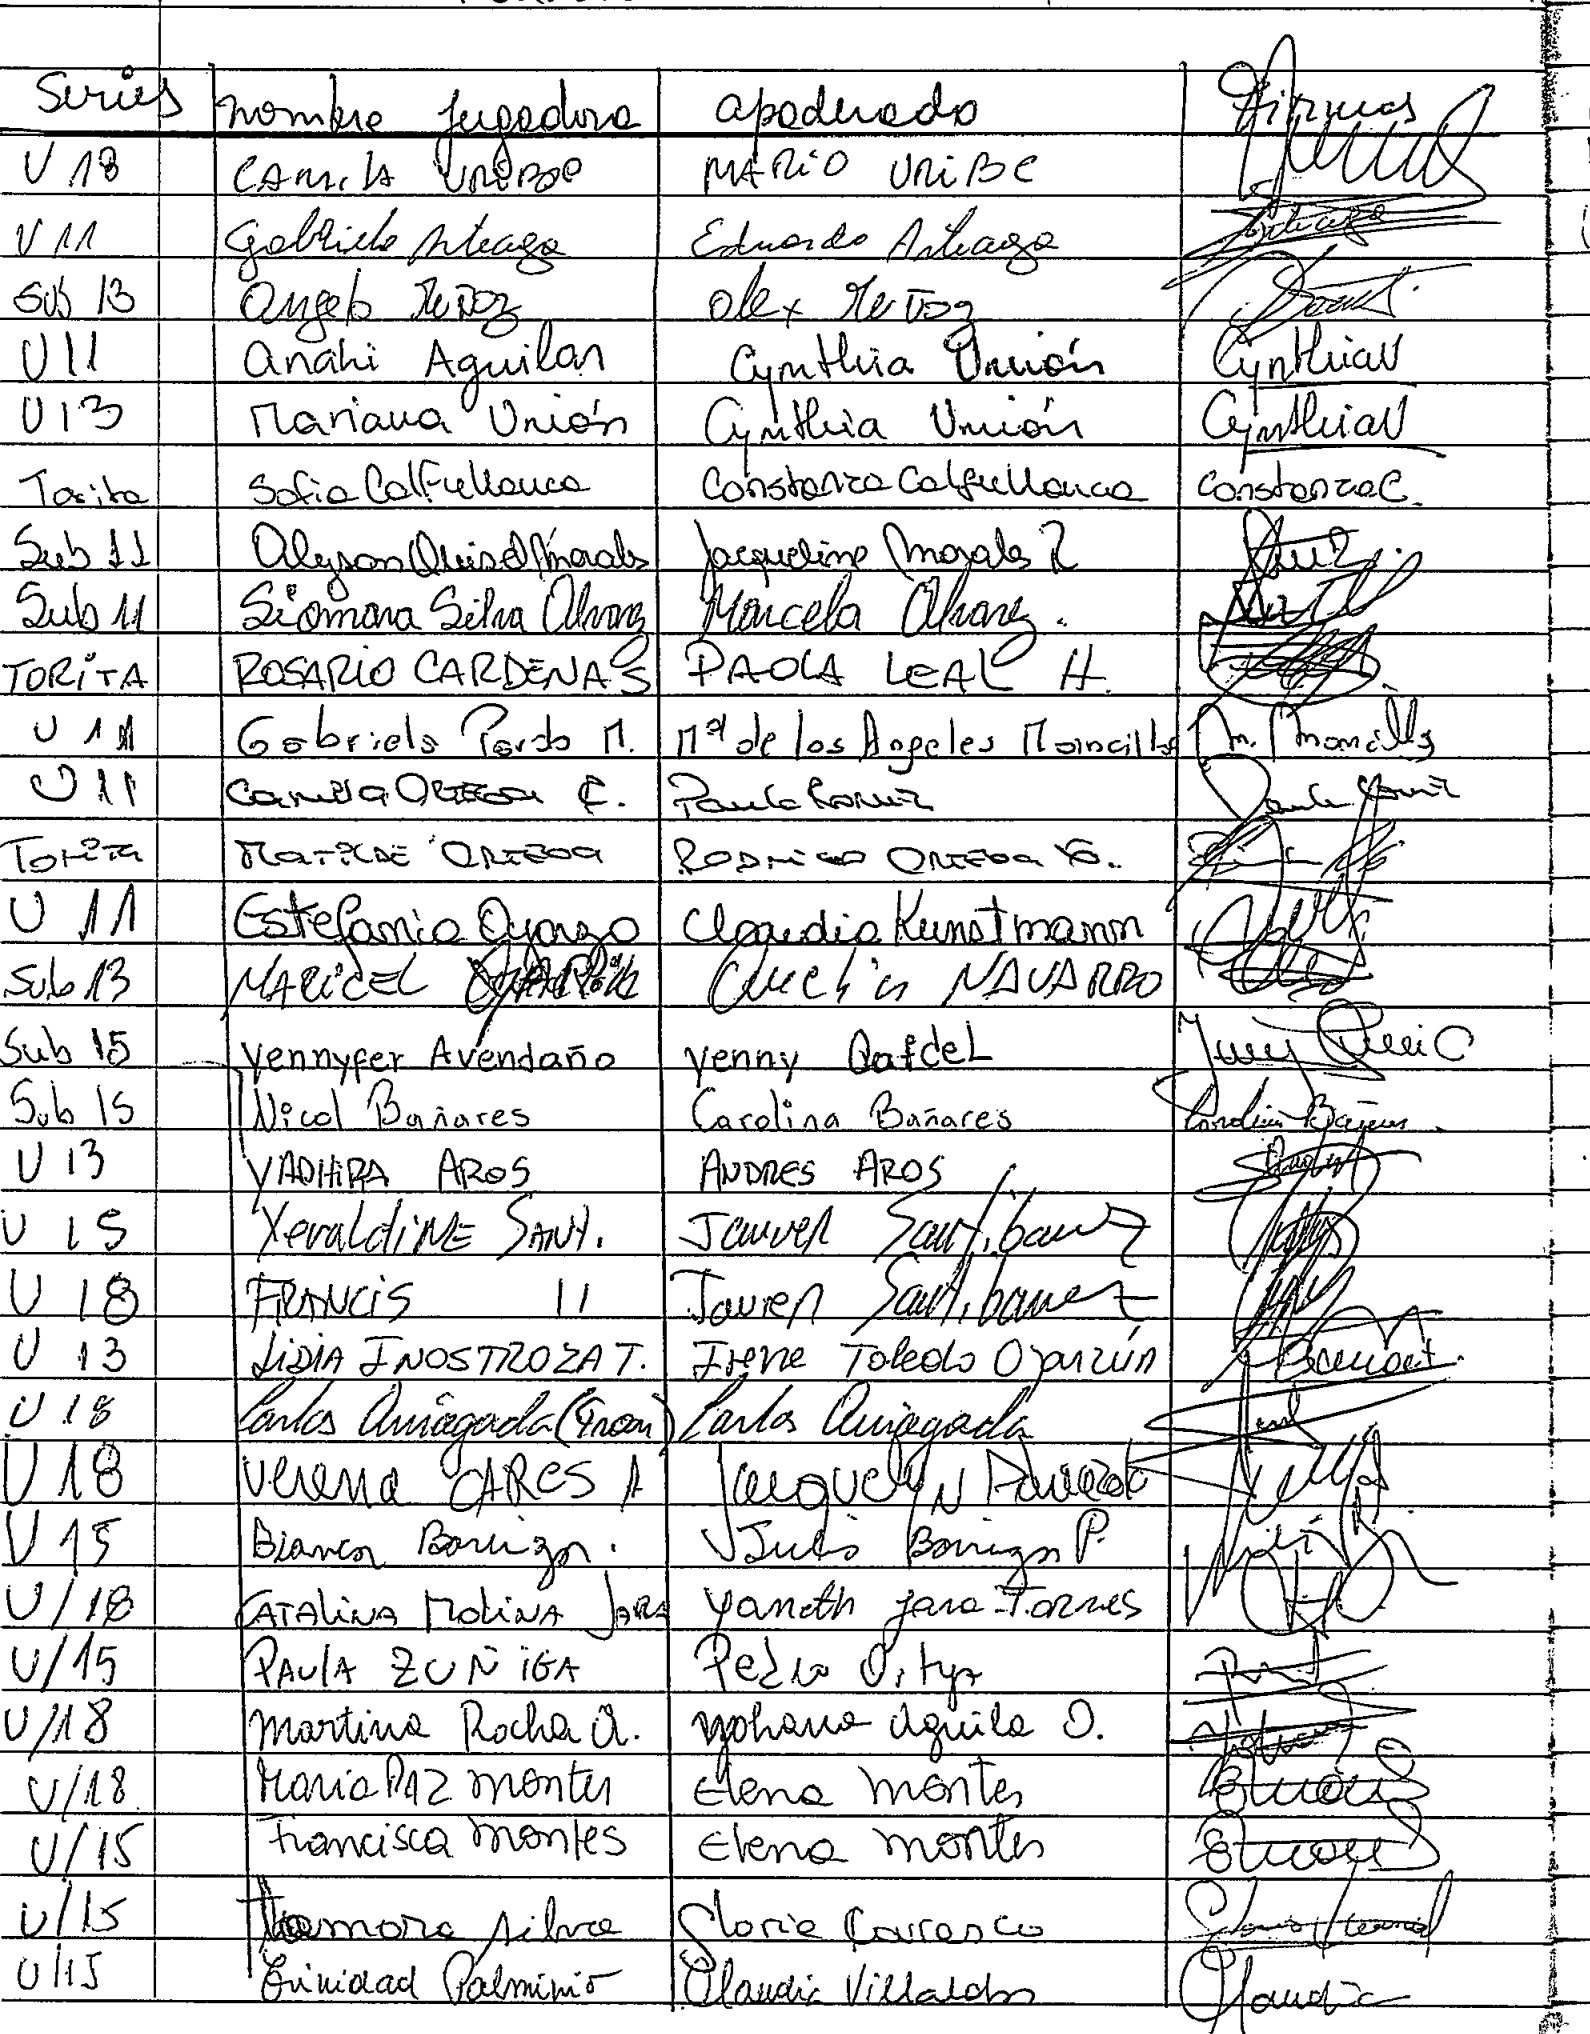 Series nombre jugadora apoderado Firmas
U 18 CAMILA URIBE MARIO URIBE
U 11 Gabriela Arteaga Eduardo Arteaga Arteaga
Sub 13 Angela Muñoz Alex Muñoz
U11 Anahi Aguilar Cynthia Unión CynthiaU
U13 Mariana Unión Cynthia Unión CynthiaU
Torita Sofia Calfullanca Constanza Calfullanca Constanza C.
Sub 11 Alyson Morales Jacqueline Morales R
Sub 11 Siomara Silva Alvarez Marcela Alvarez.
TORITA ROSARIO CARDENAS PAOLA LEAL H.
U 11 Gabriela Pardo M. Mª de los Angeles Moncilla M. Moncilla
U 11 Camila ORTEGA Paula
Torita MATILDE ORTEGA RODRIGO ORTEGA
U 11 Estefania Oyarzo Claudia Kunstmann
Sub 13 MARICEL NAVARRO
Sub 15 Yennyfer Avendaño Yenny
Sub 15 Nicol Bañares Carolina Bañares Carolina Bañares
U 13 YADHIRA AROS ANDRES AROS
U 15 YeraldiNE SANT. Javier Santibanez
U 18 FRANCIS 11 Javier Santibanez
U 13 LIDIA INOSTROZA T. Irene Toledo Oyarzún
U 18 Carlos Arriagada Carlos Arriagada
U 18 Verena CARES A
U 15 Bianca Barriga. Julio Barriga P.
U/18 CATALINA MOLINA JARA Yaneth Jara Torres
U/15 PAULA ZUÑIGA Pedro
U/18 Martina Rocha A. Yohana Aguila O.
U/18 Maria PAZ Montes Elena Montes
U/15 Francisca Montes Elena Montes
U/15 Silva Gloria Carrasco
U/15 Trinidad Palminio Claudia Villalobos Claudia